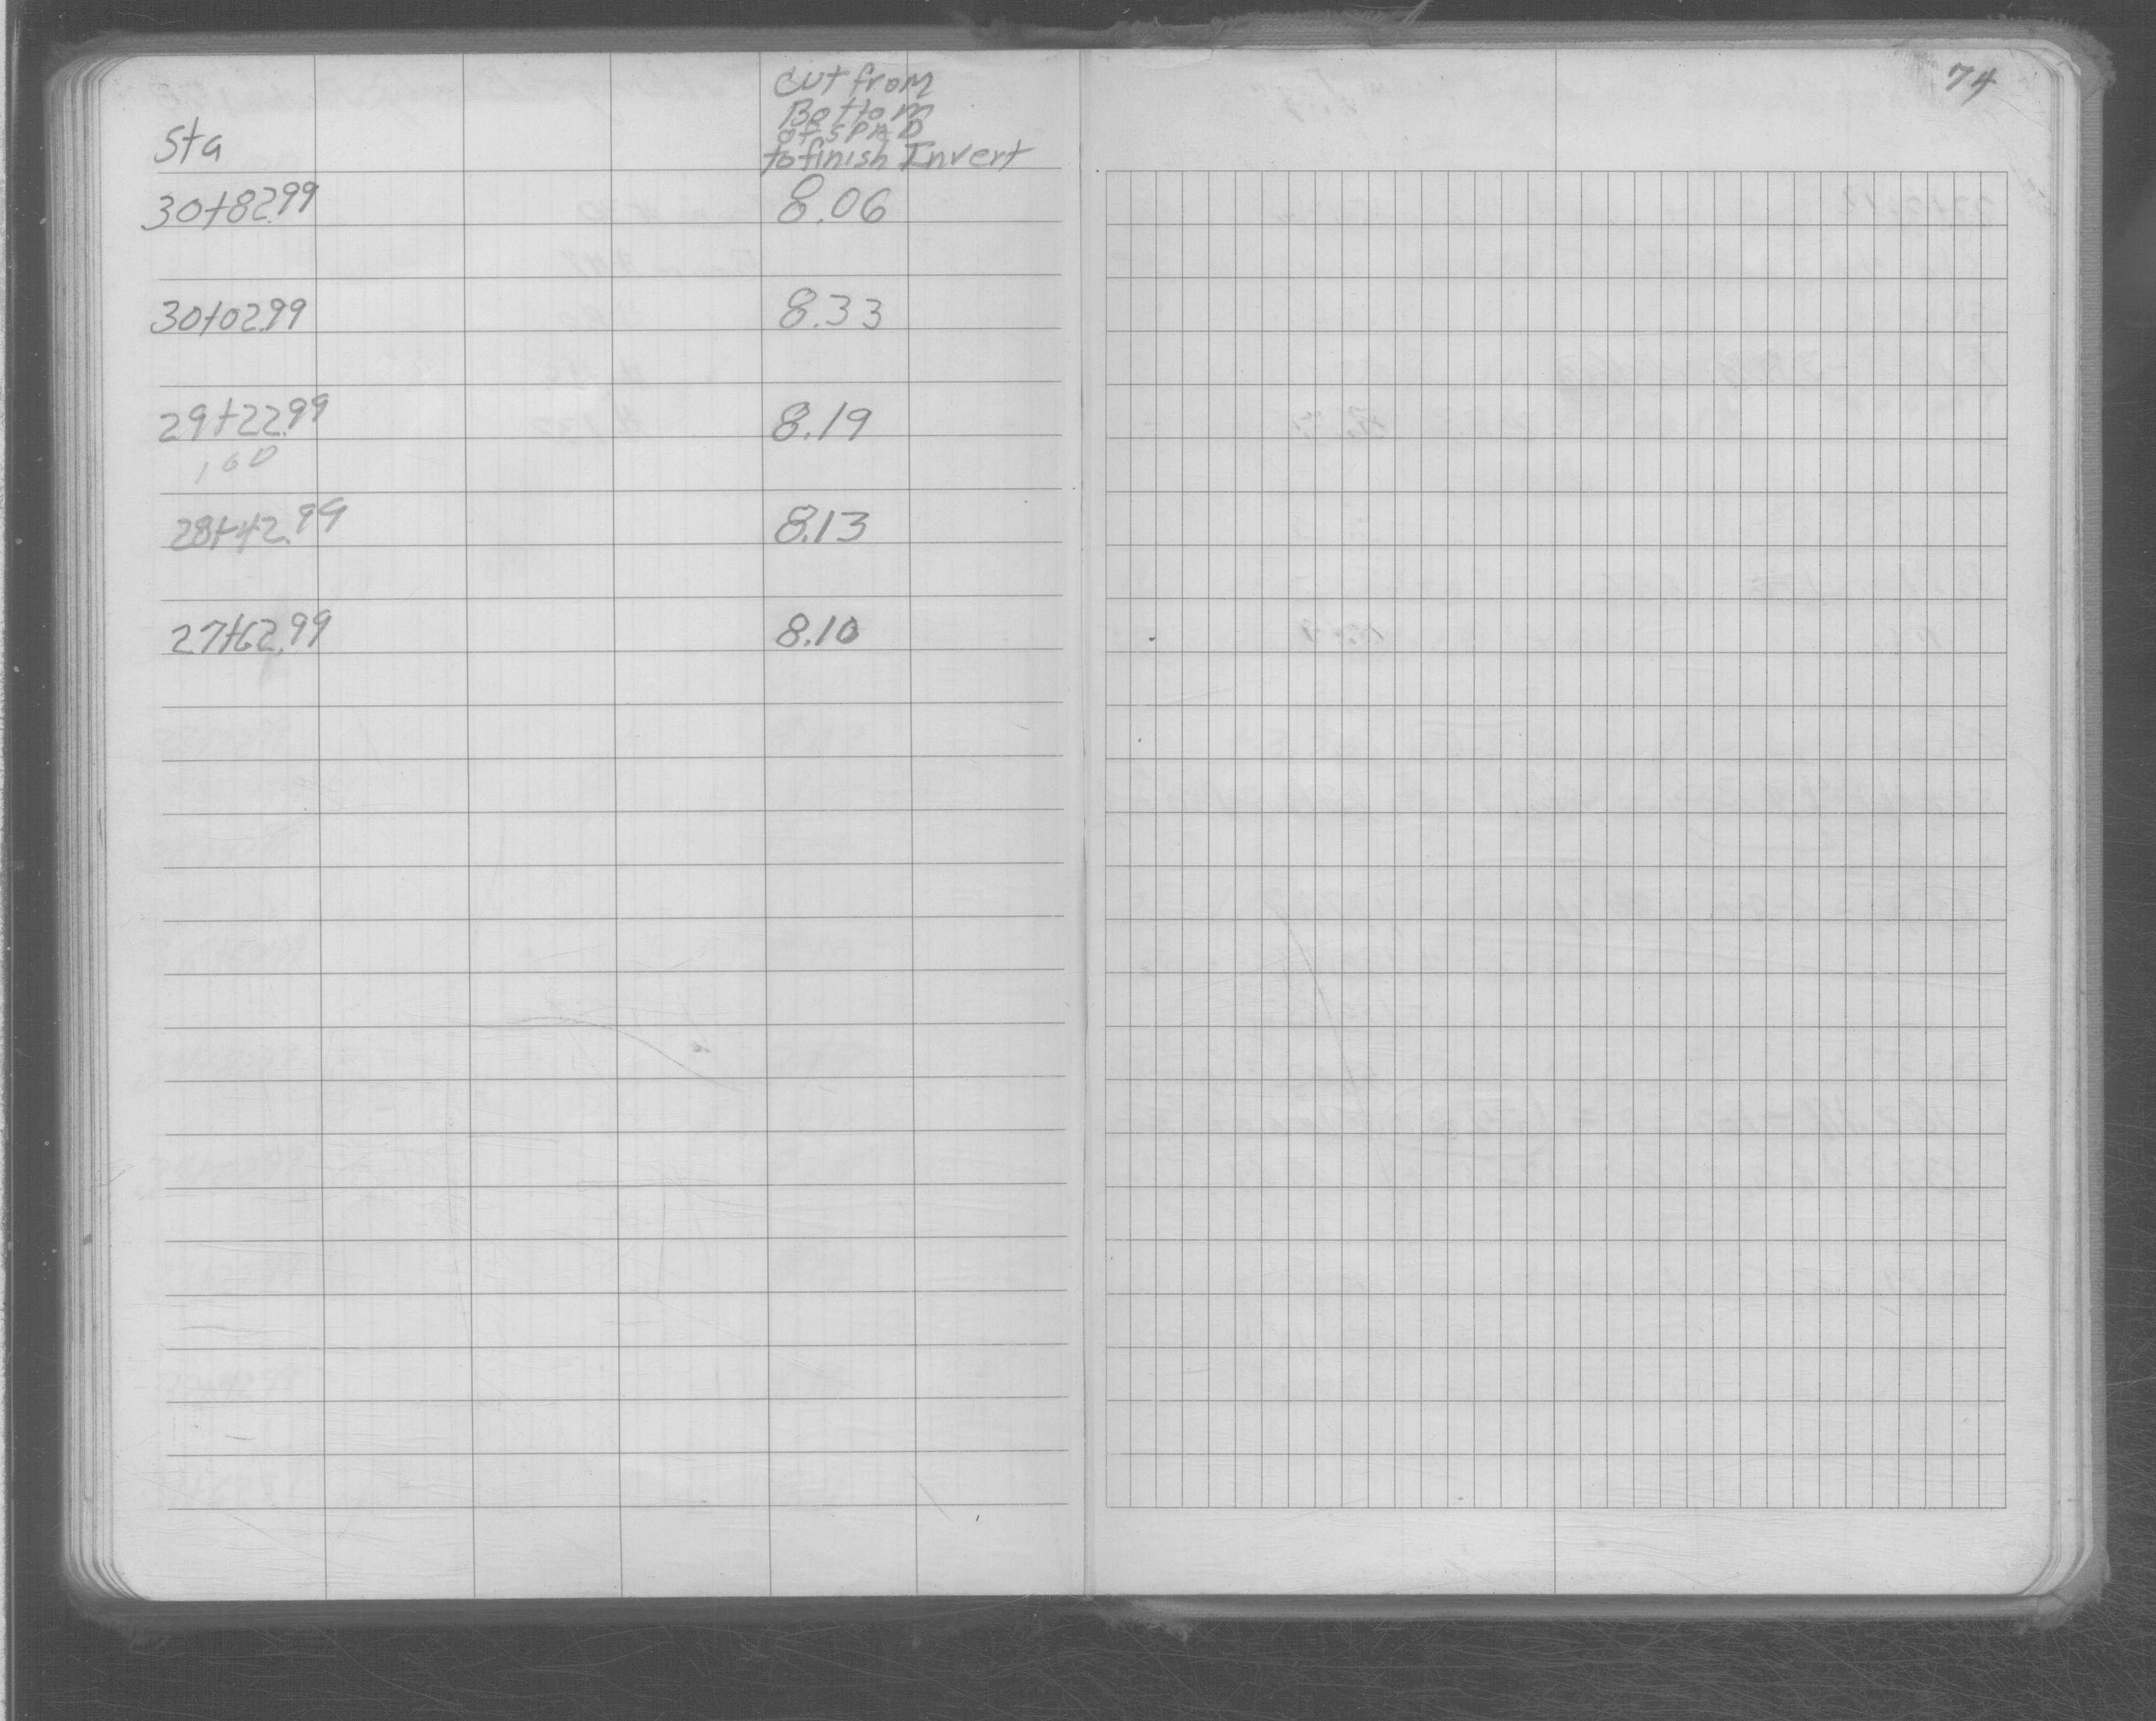 74
Cut from
Bottom
of SPAD
to finish Invert
Sta
30+82.99 8.06
30+02.99 8.33
29+22.99 8.19
160
28+42.99 8.13
27+62.99 8.10